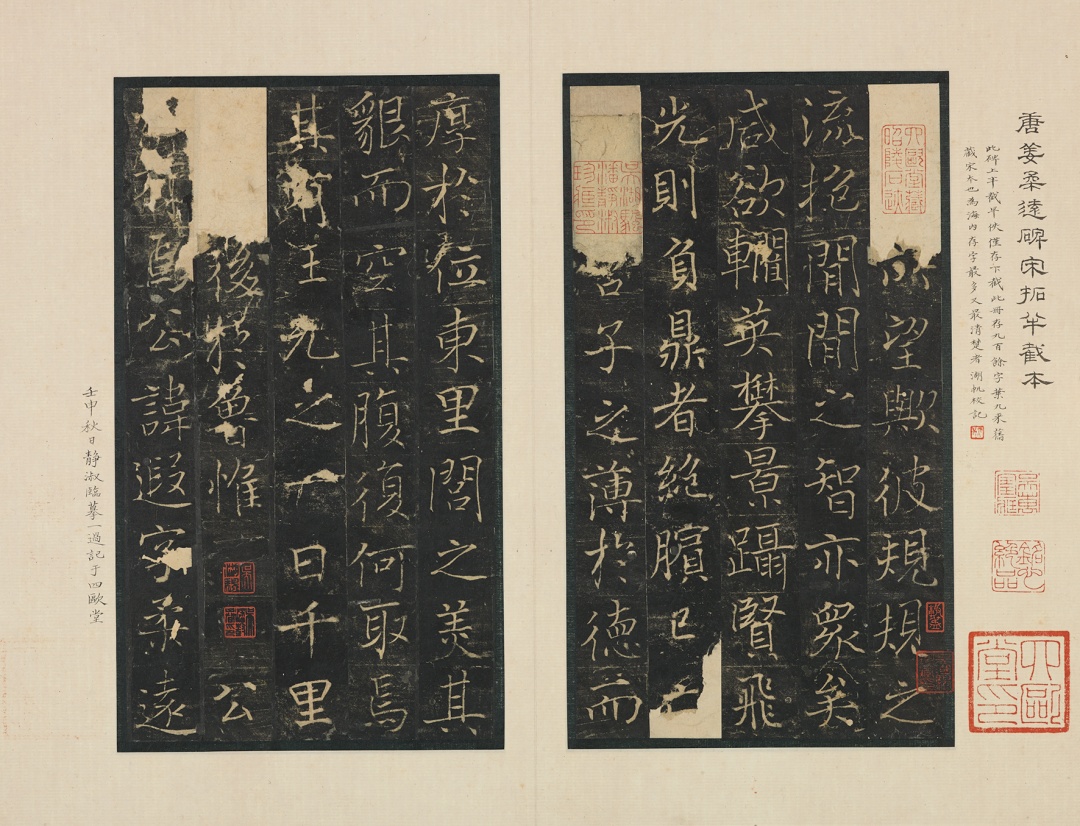 唐姜柔遠碑宋拓半截本
此碑上半截早佚僅存下截此冊存九百餘字葉九來舊
藏宋本也為海內存字最多又最清楚者湖帆校記
望歟彼規規之
流挹閒閒之智亦眾矣
咸欲轥英攀景躡賢飛
光則負鼎者絕臏已亡
呂子之薄於德而
厚於位東里閭之美其
貌而空其腹復何取焉
其有王允之一日千里
後於魯惟 公
焉公諱遐字柔遠
壬申秋日靜淑臨摹一過記于四歐堂
四歐堂印